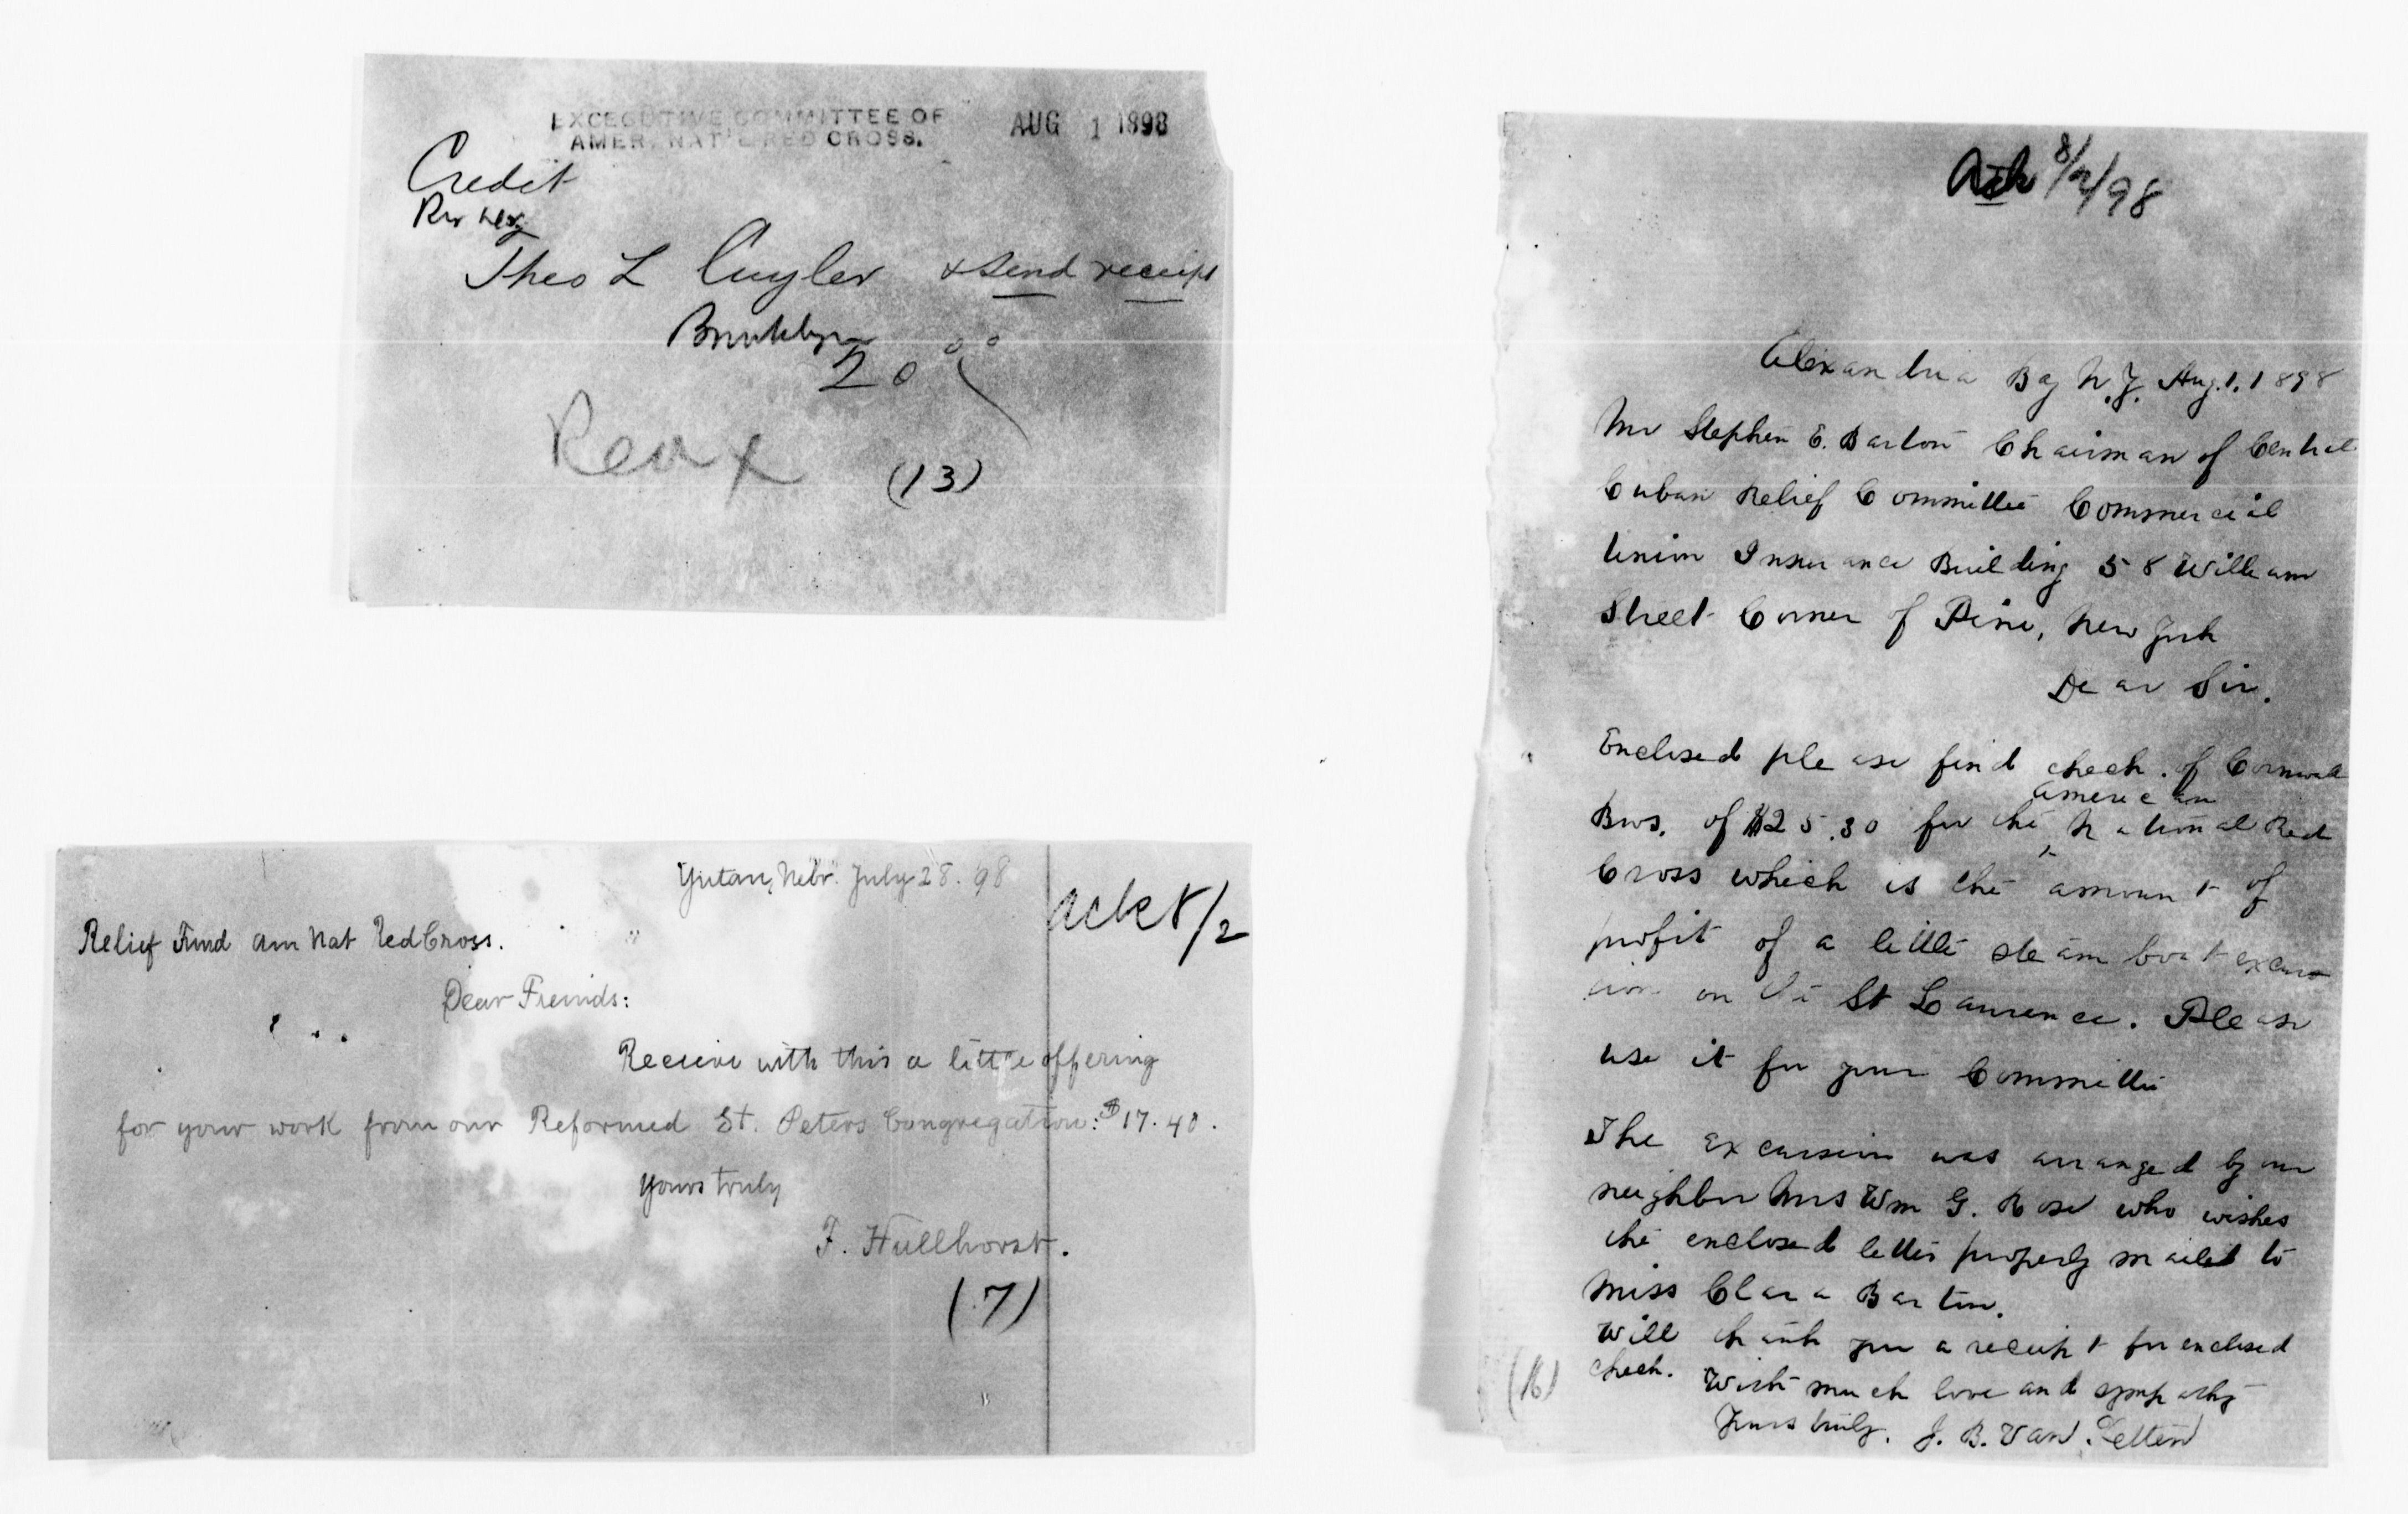 EXCECUTIVE COMMITTEE OF
AMER. NAT'L RED CROSS.
AUG 1 1898
Credit
Rev
Theo L Cuyler & send receipt
Brooklyn
20 00
(13)
Yutan, Nebr. July 28. '98
ack 8/2
Relief Fund Am Nat Red Cross.
Dear Freinds:
Receive with this a little offering
for your work from our Reformed St. Peters Congregation: $17.40.
Yours truly
F. Hullhorst.
(7)
Ack 8/2/98
Alexandria Bay N.Y. Aug. 1. 1898
Mr Stephen E. Barton Chairman of Central
Cuban Relief Committee Commercial
Union Insurance Building 58 William
Street Corner of Pine, New York
Dear Sir.
Enclosed please find check of Cornwall
american
Bros. of $25.30 for the National Red
Cross which is the amount of
profit of a little steam boat excur
sion on the St Laurence. Please
use it for your Committee
The excursion was arranged by our
neighbor Mrs Wm G. Rose who wishes
the enclosed letter properly mailed to
Miss Clara Barton.
Will thank you a receipt for enclosed
check. With much love and sympathy
Yours truly. J. B. Van
(16)